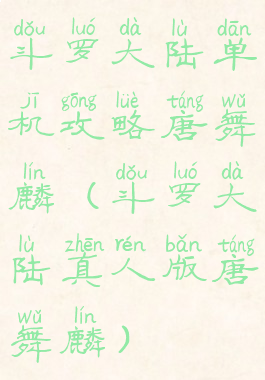 dǒu luó dà lù dān
斗罗大陆单
jī gōng lüè táng wǔ
机攻略唐舞
lín dǒu luó dà
麟（斗罗大
lù zhēn rén bǎn táng
陆真人版唐
wǔ lín
舞麟）